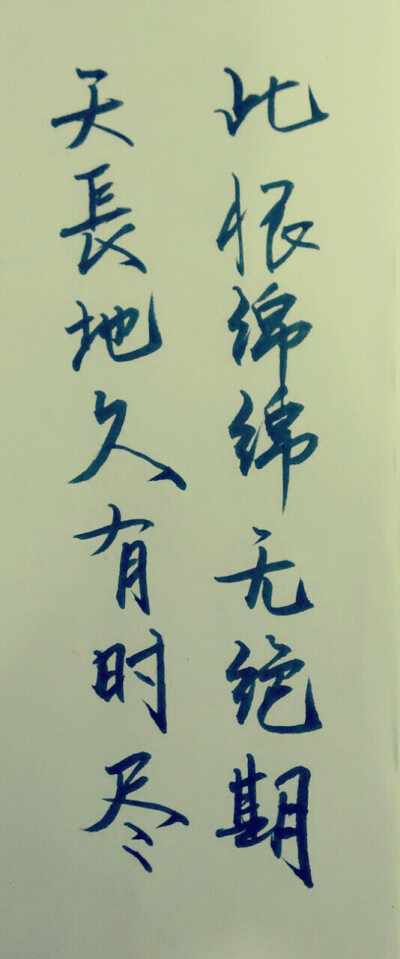 天長地久有时尽
此恨绵绵无绝期